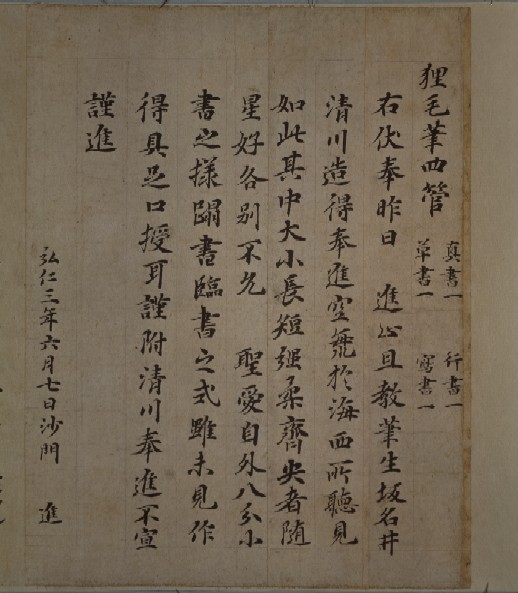 狸毛筆四管 真書一 行書一
草書一 寫書一
右伏奉昨日 進止且教筆生坂名井
清川造得奉進空於海西所聽見
如此其中大小長短强柔齊尖者随
星好各別不允 聖愛自外八分小
書之様蹋書臨書之式雖未見作
得具足口授耳謹附清川奉進不宣
謹進
弘仁三年六月七日沙門 進